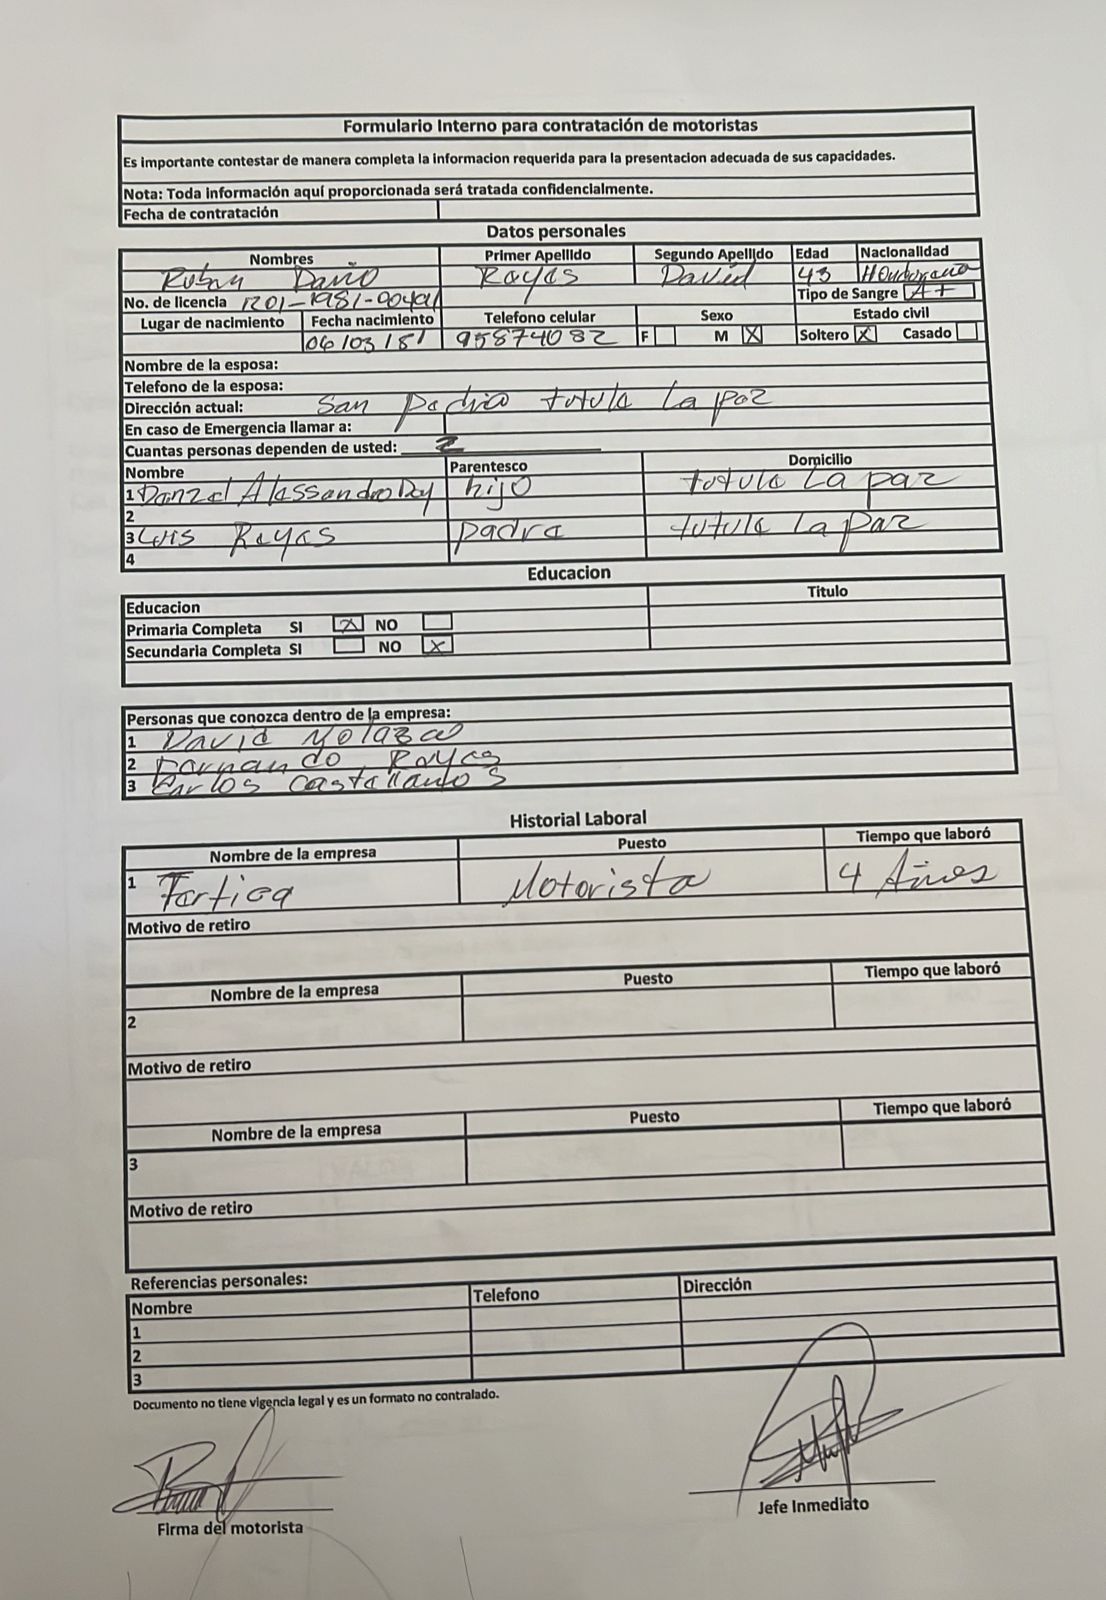 Formulario Interno para contratación de motoristas
Es importante contestar de manera completa la informacion requerida para la presentacion adecuada de sus capacidades.
Nota: Toda información aquí proporcionada será tratada confidencialmente.
Fecha de contratación
Datos personales
Nombres Primer Apellido Segundo Apellido Edad Nacionalidad
Ruben Dario Reyes David 43 Hondureña
No. de licencia 1201-1981-00491 Tipo de Sangre A+
Lugar de nacimiento Fecha nacimiento Telefono celular Sexo Estado civil
06/03/81 95874082 F M X Soltero X Casado
Nombre de la esposa:
Telefono de la esposa:
Dirección actual: San Pedro tutule La paz
En caso de Emergencia llamar a:
Cuantas personas dependen de usted: 2
Nombre Parentesco Domicilio
1 Denzel Alessandro hijo tutule La paz
2
3 Luis Reyes padre tutule La paz
4
Educacion
Educacion Titulo
Primaria Completa SI X NO
Secundaria Completa SI NO X
Personas que conozca dentro de la empresa:
1 David
2 Fernando Reyes
3 Carlos Castellanos
Historial Laboral
Nombre de la empresa Puesto Tiempo que laboró
1 Motorista 4 Años
Motivo de retiro
Nombre de la empresa Puesto Tiempo que laboró
2
Motivo de retiro
Nombre de la empresa Puesto Tiempo que laboró
3
Motivo de retiro
Referencias personales:
Nombre Telefono Dirección
1
2
3
Documento no tiene vigencia legal y es un formato no contralado.
Firma del motorista Jefe Inmediato